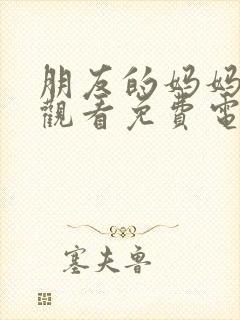 朋友的妈妈
觀看免費電
塞夫鲁